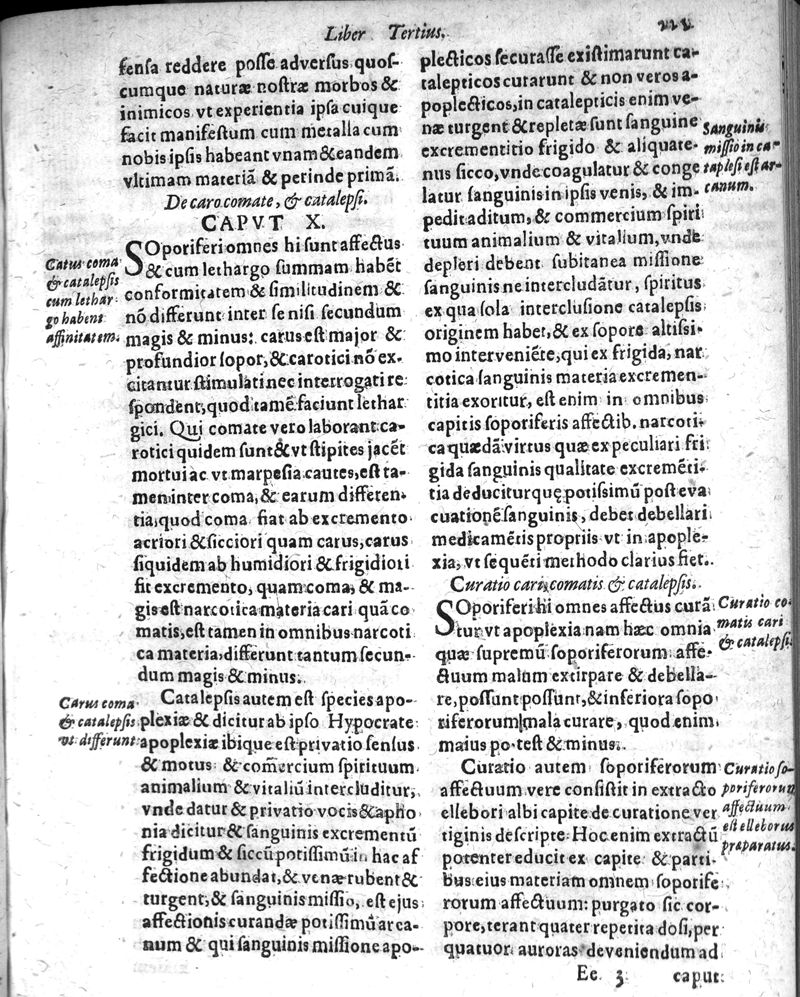 Liber Tertius.
fensa reddere posse adversus quos-
cumque naturæ nostræ morbos &
inimicos vt experientia ipsa cuique
facit manifestum cum metalla cum
nobis ipsis habeant vnam & eandem
vltimam materiã & perinde primã.
De caro comate, & catalepsi.
CAPVT X.
Catus coma
& catalepsis
cum lethar-
go habent
affinitatem.
SOporiferi omnes hi sunt affectus
& cum lethargo summam habẽt
conformitatem & similitudinem &
nõ differunt inter se nisi secundum
magis & minus: carus est major &
profundior sopor, & carotici nõ ex-
citantur stimulati nec interrogati re
spondent, quod tamẽ faciunt lethar
gici. Qui comate vero laborant ca-
rotici quidem sunt & vt stipites jacẽt
mortui ac vt marpesia cautes, est ta-
men inter coma, & earum differen-
tia, quod coma fiat ab excremento
acriori & sicciori quam carus, carus
siquidem ab humidiori & frigidiori
fit excremento, quam coma, & ma-
gis est narcotica materia cari quã co
matis, est tamen in omnibus narcoti
ca materia, differunt tantum secun-
dum magis & minus.
Carus coma
& catalepsis
vt differunt
Catalepsis autem est species apo-
plexiæ & dicitur ab ipso Hypocrate
apoplexiæ ibique est privatio sensus
& motus & com̃ercium spirituum
animalium & vitaliũ intercluditur,
vnde datur & privatio vocis & apho
nia dicitur & sanguinis excrementũ
frigidum & siccũ potissimũ in hac af
fectione abundat, & venæ rubent &
turgent, & sanguinis missio, est ejus
affectionis curandæ potissimũ arca-
num & qui sanguinis missione apo-
plecticos se curasse existimarunt ca-
talepticos curarunt & non veros a-
poplecticos, in catalepticis enim ve-
næ turgent & repletæ sunt sanguine
excrementitio frigido & aliquate-
nus sicco, vnde coagulatur & conge
latur sanguinis in ipsis venis, & im-
pedit aditum, & commercium spiri
tuum animalium & vitalium, vnde
depleri debent subitanea missione
sanguinis ne intercludãtur, spiritus
ex qua sola interclusione catalepsis
originem habet, & ex sopore altissi-
mo interveniẽte, qui ex frigida, nar
cotica sanguinis materia excremen-
titia exoritur, est enim in omnibus
capitis soporiferis affectib. narcoti-
ca quædã virtus quæ ex peculiari fri
gida sanguinis qualitate excremẽti-
tia deducitur quę potissimũ post eva
cuationẽ sanguinis, debet debellari
medicamẽtis propriis vt in apople-
xia, vt sequẽti methodo clarius fiet.
Sanguinis
missio in ca-
taplesi est ar-
canum.
Curatio cari, comatis & catalepsis.
SOporiferi hi omnes affectus curã
tur vt apoplexia nam hæc omnia
quæ supremũ soporiferorum affe-
ctuum malum extirpare & debella-
re, possunt possunt, & inferiora sopo
riferorum mala curare, quod enim
maius potest & minus.
Curatio co-
matis cari
& catalepsi.
Curatio autem soporiferorum
affectuum vere consistit in extracto
ellebori albi capite de curatione ver
tiginis descripte Hoc enim extractũ
potenter educit ex capite & parti-
bus eius materiam omnem soporife
rorum affectuum: purgato sic cor-
pore, terant quater repetita dosi, per
quatuor auroras deveniendum ad
Curatio so-
poriferorum
affectuum
est elleborus
præparatus.
Ee 3 caput